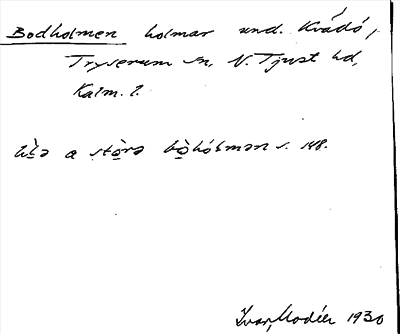 Bodholmen holmar und. Kvädö,
Tryserum sn, N. Tjust hd,
Kalm. l.
a stora s. 148.
Ivar Modéer 1930